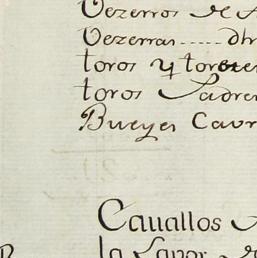 Vezerros de
Vezerras ----- dh
toros y toretes
toros Padre
Bueyes
Cauallos
la Lauor de